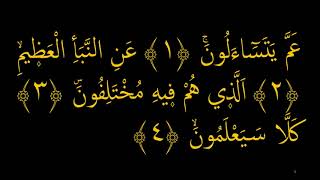 عَمَّ يَتَسَاۤءَلُونَۚ ﴿١﴾ عَنِ النَّبَأِ الْعَظ۪يمِۙ
﴿٢﴾ اَلَّذ۪ي هُمْ ف۪يهِ مُخْتَلِفُونَۜ ﴿٣﴾
كَلَّا سَيَعْلَمُونَۙ ﴿٤﴾